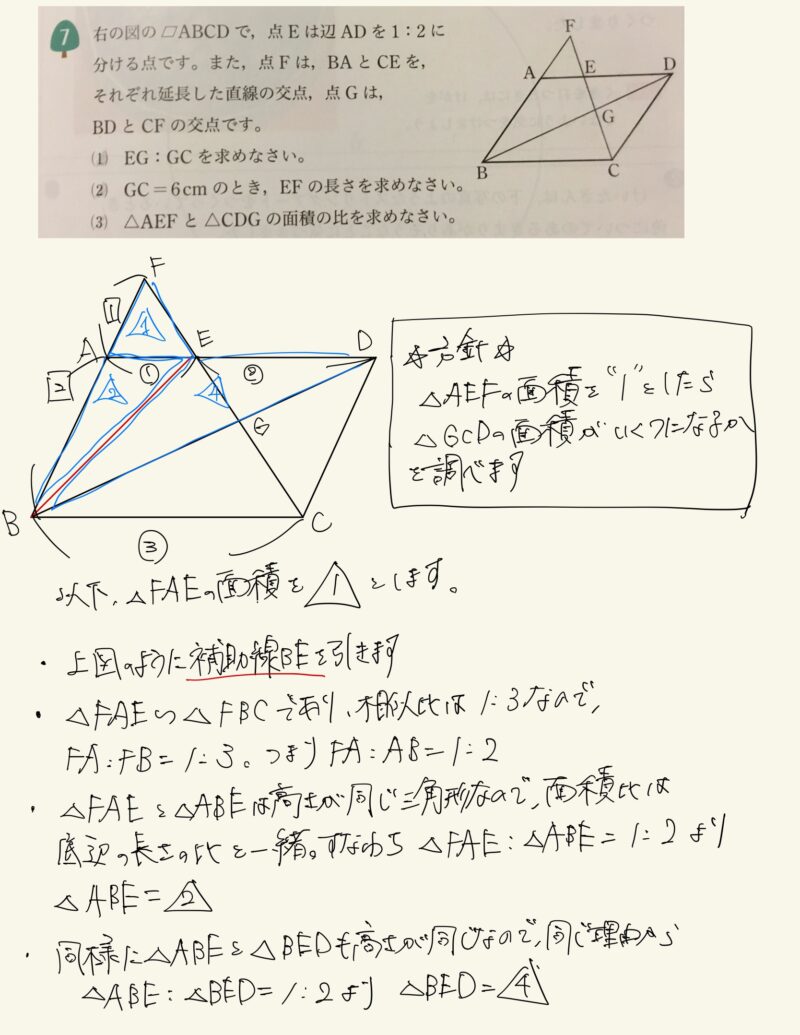 7 右の図の ▱ABCD で，点 E は辺 AD を 1：2 に
分ける点です。また，点 F は，BA と CE を，
それぞれ延長した直線の交点，点 G は，
BD と CF の交点です。
(1) EG：GC を求めなさい。
(2) GC＝6cm のとき，EF の長さを求めなさい。
(3) △AEF と △CDG の面積の比を求めなさい。
F
A E D
G
B C
F
1 1
A E D
2 ① ②
2 4
G
B C
③
☆方針☆
△AEFの面積を"1"としたら
△GCDの面積がいくつになるか
を調べます
以下、△FAEの面積を 1 とします。
・上図のように補助線BEを引きます
・△FAE∽△FBCであり、相似比は1:3なので、
FA:FB=1:3。つまりFA:AB=1:2
・△FAEと△ABEは高さが同じ三角形なので、面積比は
底辺の長さの比と一緒。すなわち △FAE:△ABE=1:2より
△ABE=2
・同様に△ABEと△BEDも高さが同じなので、同じ理由から
△ABE:△BED=1:2より △BED=4